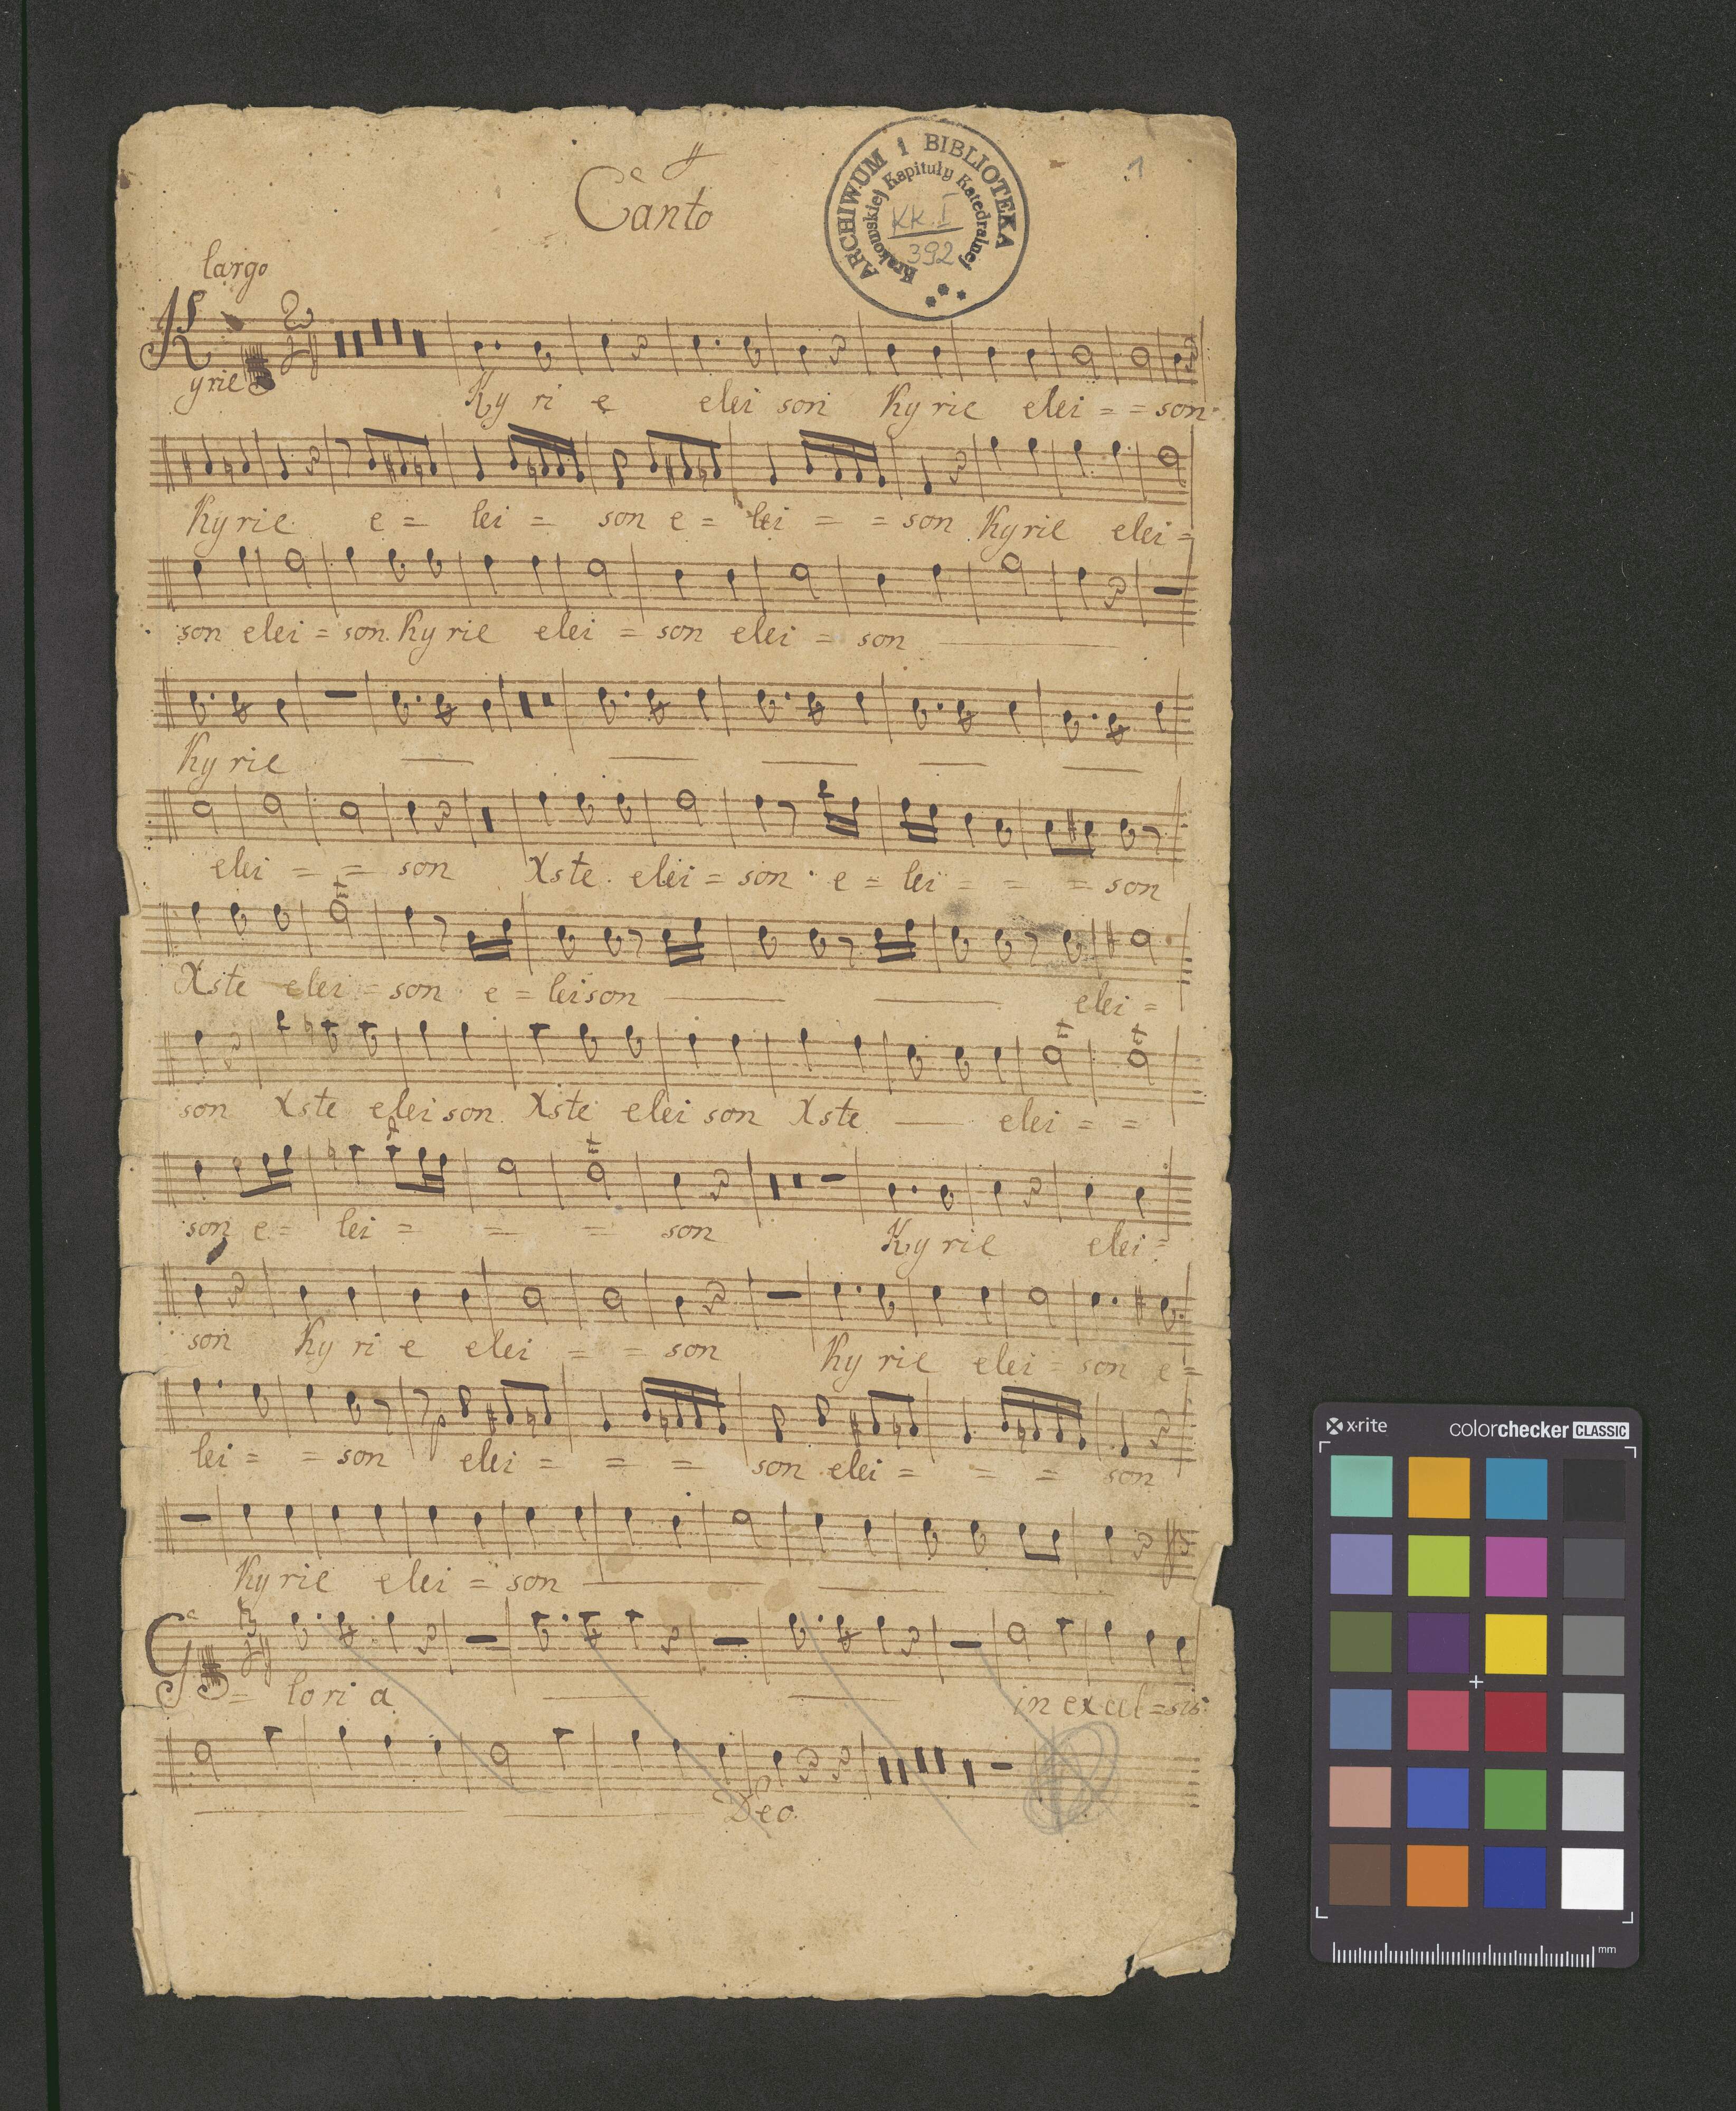 1
Canto
ARCHIWUM I BIBLIOTEKA
Krakowskiej Kapituły Katedralnej
KK. I
392
largo
Kyrie
Ky ri e elei son Ky rie elei = = son
Kyrie e = lei = son e = lei = = son Kyrie elei =
son elei = son. Ky rie elei = son elei = son
Ky rie
elei = = son Xste elei = son e = lei = = = son
Xste elei = son e = leison elei =
son Xste elei son Xste elei son Xste elei = =
son e = lei = = = son Ky rie elei =
son Ky ri e elei = = son Ky rie elei = son e =
lei = = son elei = = = son elei = = = son
Ky rie elei = son
G = lo ri a in excel = sis
Deo.
x·rite colorchecker CLASSIC
mm